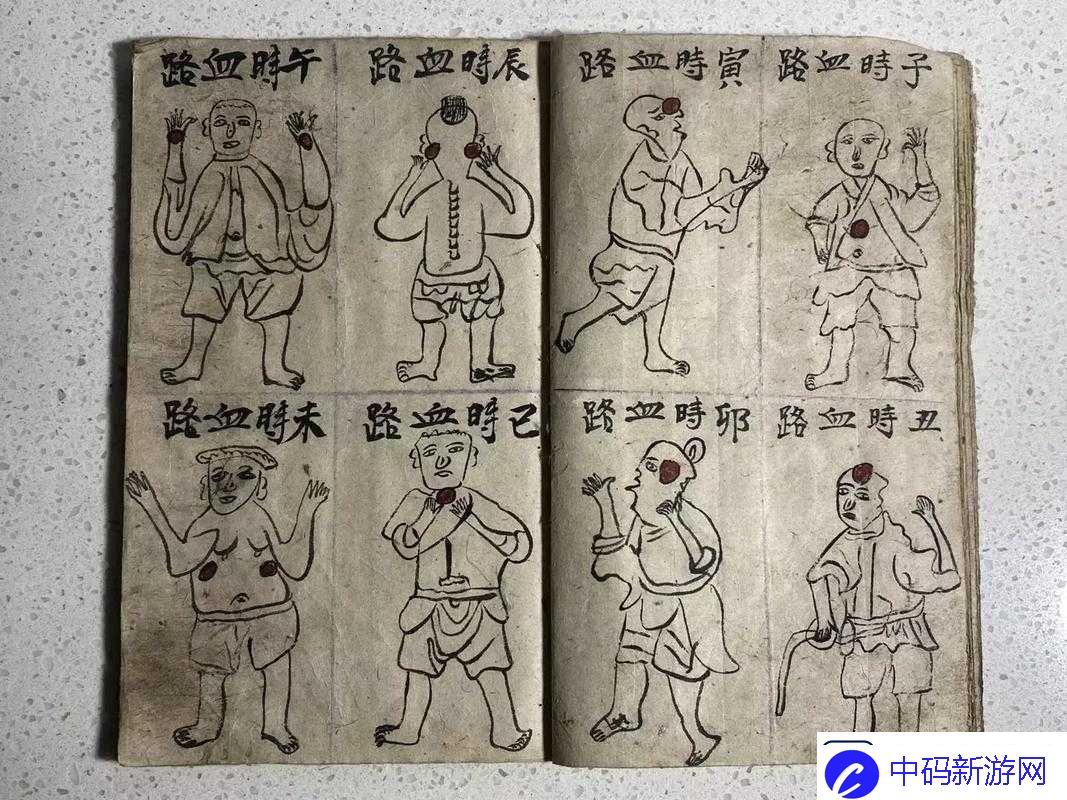 子時血路
丑時血路
寅時血路
卯時血路
辰時血路
巳時血路
午時血路
未時血路
中码新游网